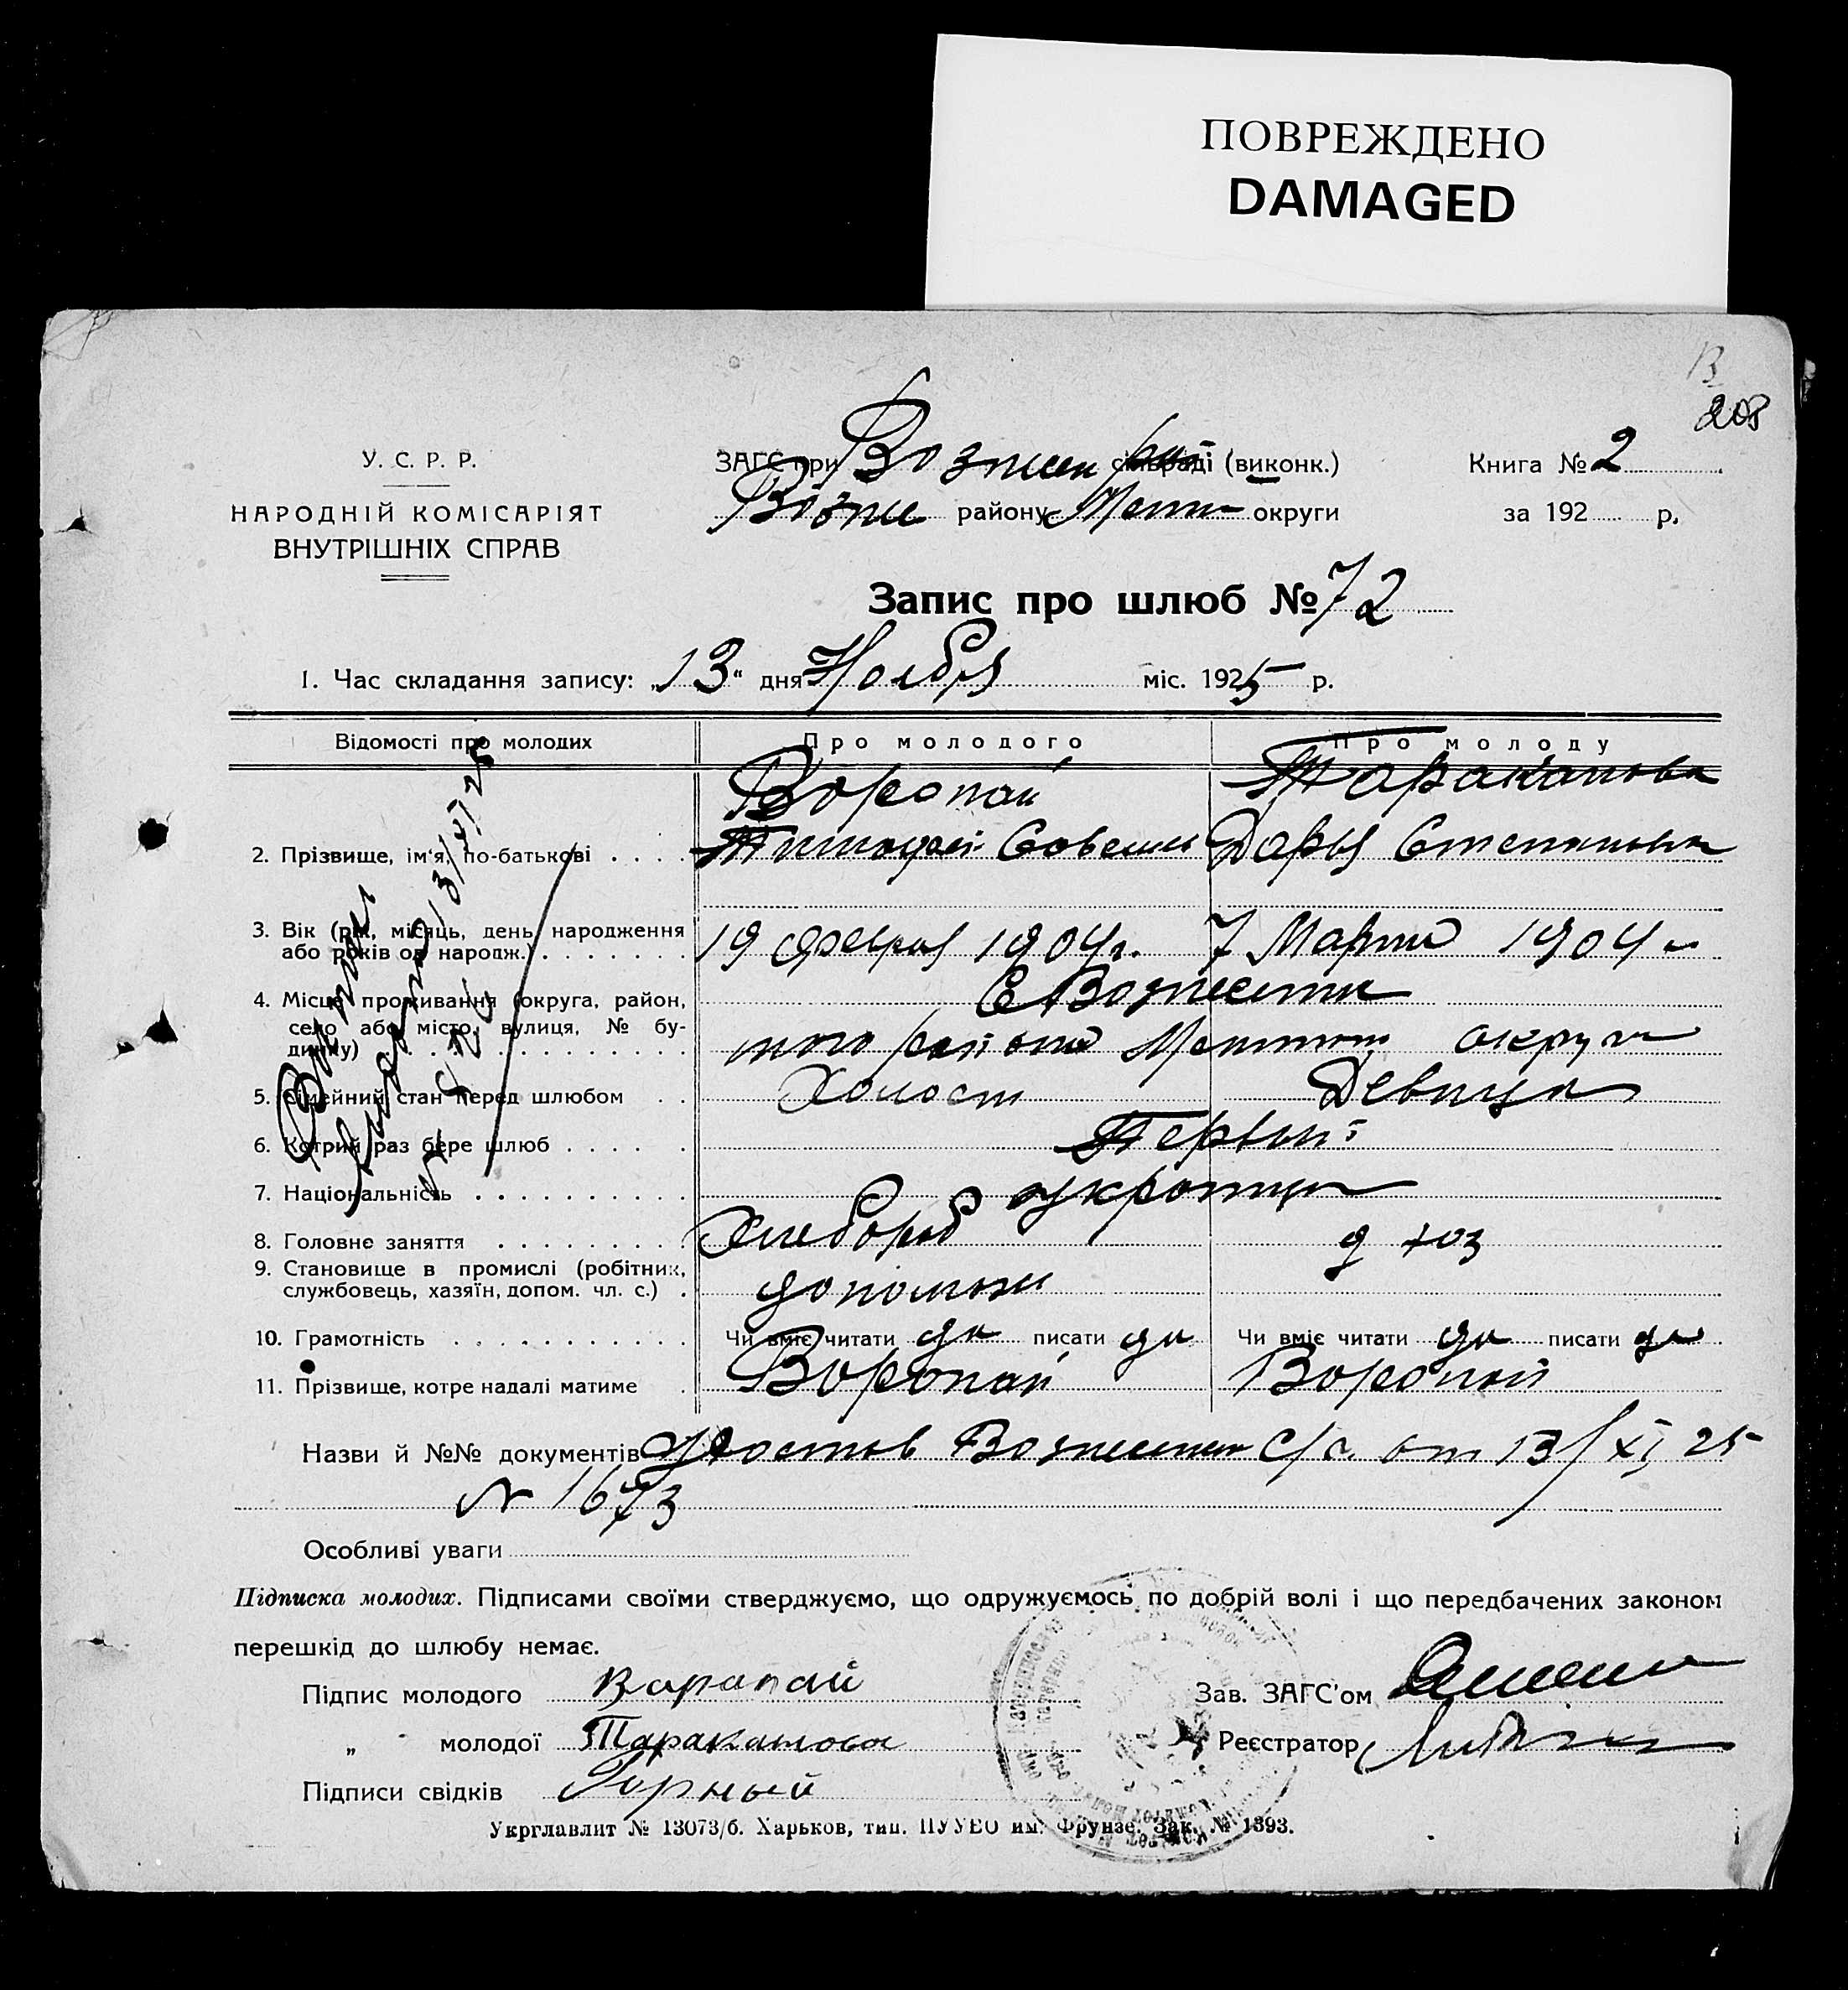 ПОВРЕЖДЕНО
DAMAGED
208
У. С. Р. Р.
НАРОДНІЙ КОМІСАРІЯТ
ВНУТРІШНІХ СПРАВ
ЗАГС при Вознесен сільраді (виконк.)
району округи
Книга № 2
за 192 р.
Запис про шлюб № 72
1. Час складання запису: „13“ дня Ноября міс. 1925 р.
Відомості про молодих
Про молодого
Про молоду
2. Прізвище, ім'я, по-батькові
Воропай
Тимофей
Тараканова
Дарья Степановна
3. Вік (рік, місяць, день народження
або років од народж.)
19 Февраля 1904 г.
7 Марта 1904 г
4. Місце проживання (округа, район,
село або місто, вулиця, № бу-
динку)
С Вознесенка
того района округи
5. Сімейний стан перед шлюбом
Холост
Девица
6. Котрий раз бере шлюб
Первый
7. Національність
украинцы
8. Головне заняття
Хлебороб
д хоз
9. Становище в промислі (робітник,
службовець, хазяїн, допом. чл. с.)
10. Грамотність
Чи вміє читати да писати да
Чи вміє читати да писати да
11. Прізвище, котре надалі матиме
Воропай
Воропай
Назви й №№ документів Удостов Вознесенск С/с. от 13/XI 25
N 1673
Особливі уваги
Підписка молодих. Підписами своїми стверджуємо, що одружуємось по добрій волі і що передбачених законом
перешкід до шлюбу немає.
Підпис молодого Варапай
„ молодої Тараканова
Підписи свідків Горный
Зав. ЗАГС'ом
Реєстратор
Укрглавлит № 13073/б. Харьков, тип. ПУУВО им. Фрунзе. Зак. № 1393.